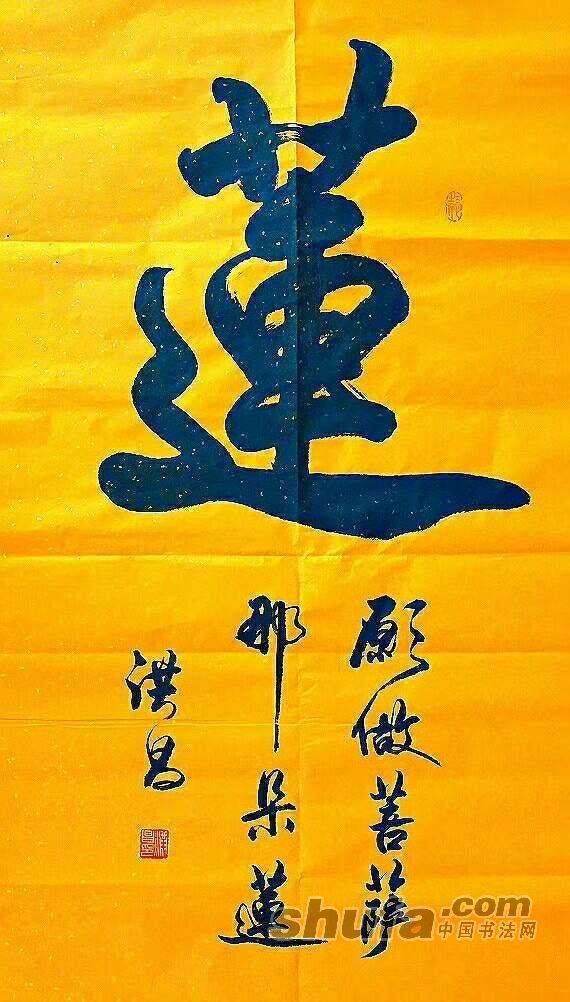 蓮
願做菩薩
那朵蓮
洪昌
shufa.com
中国书法网